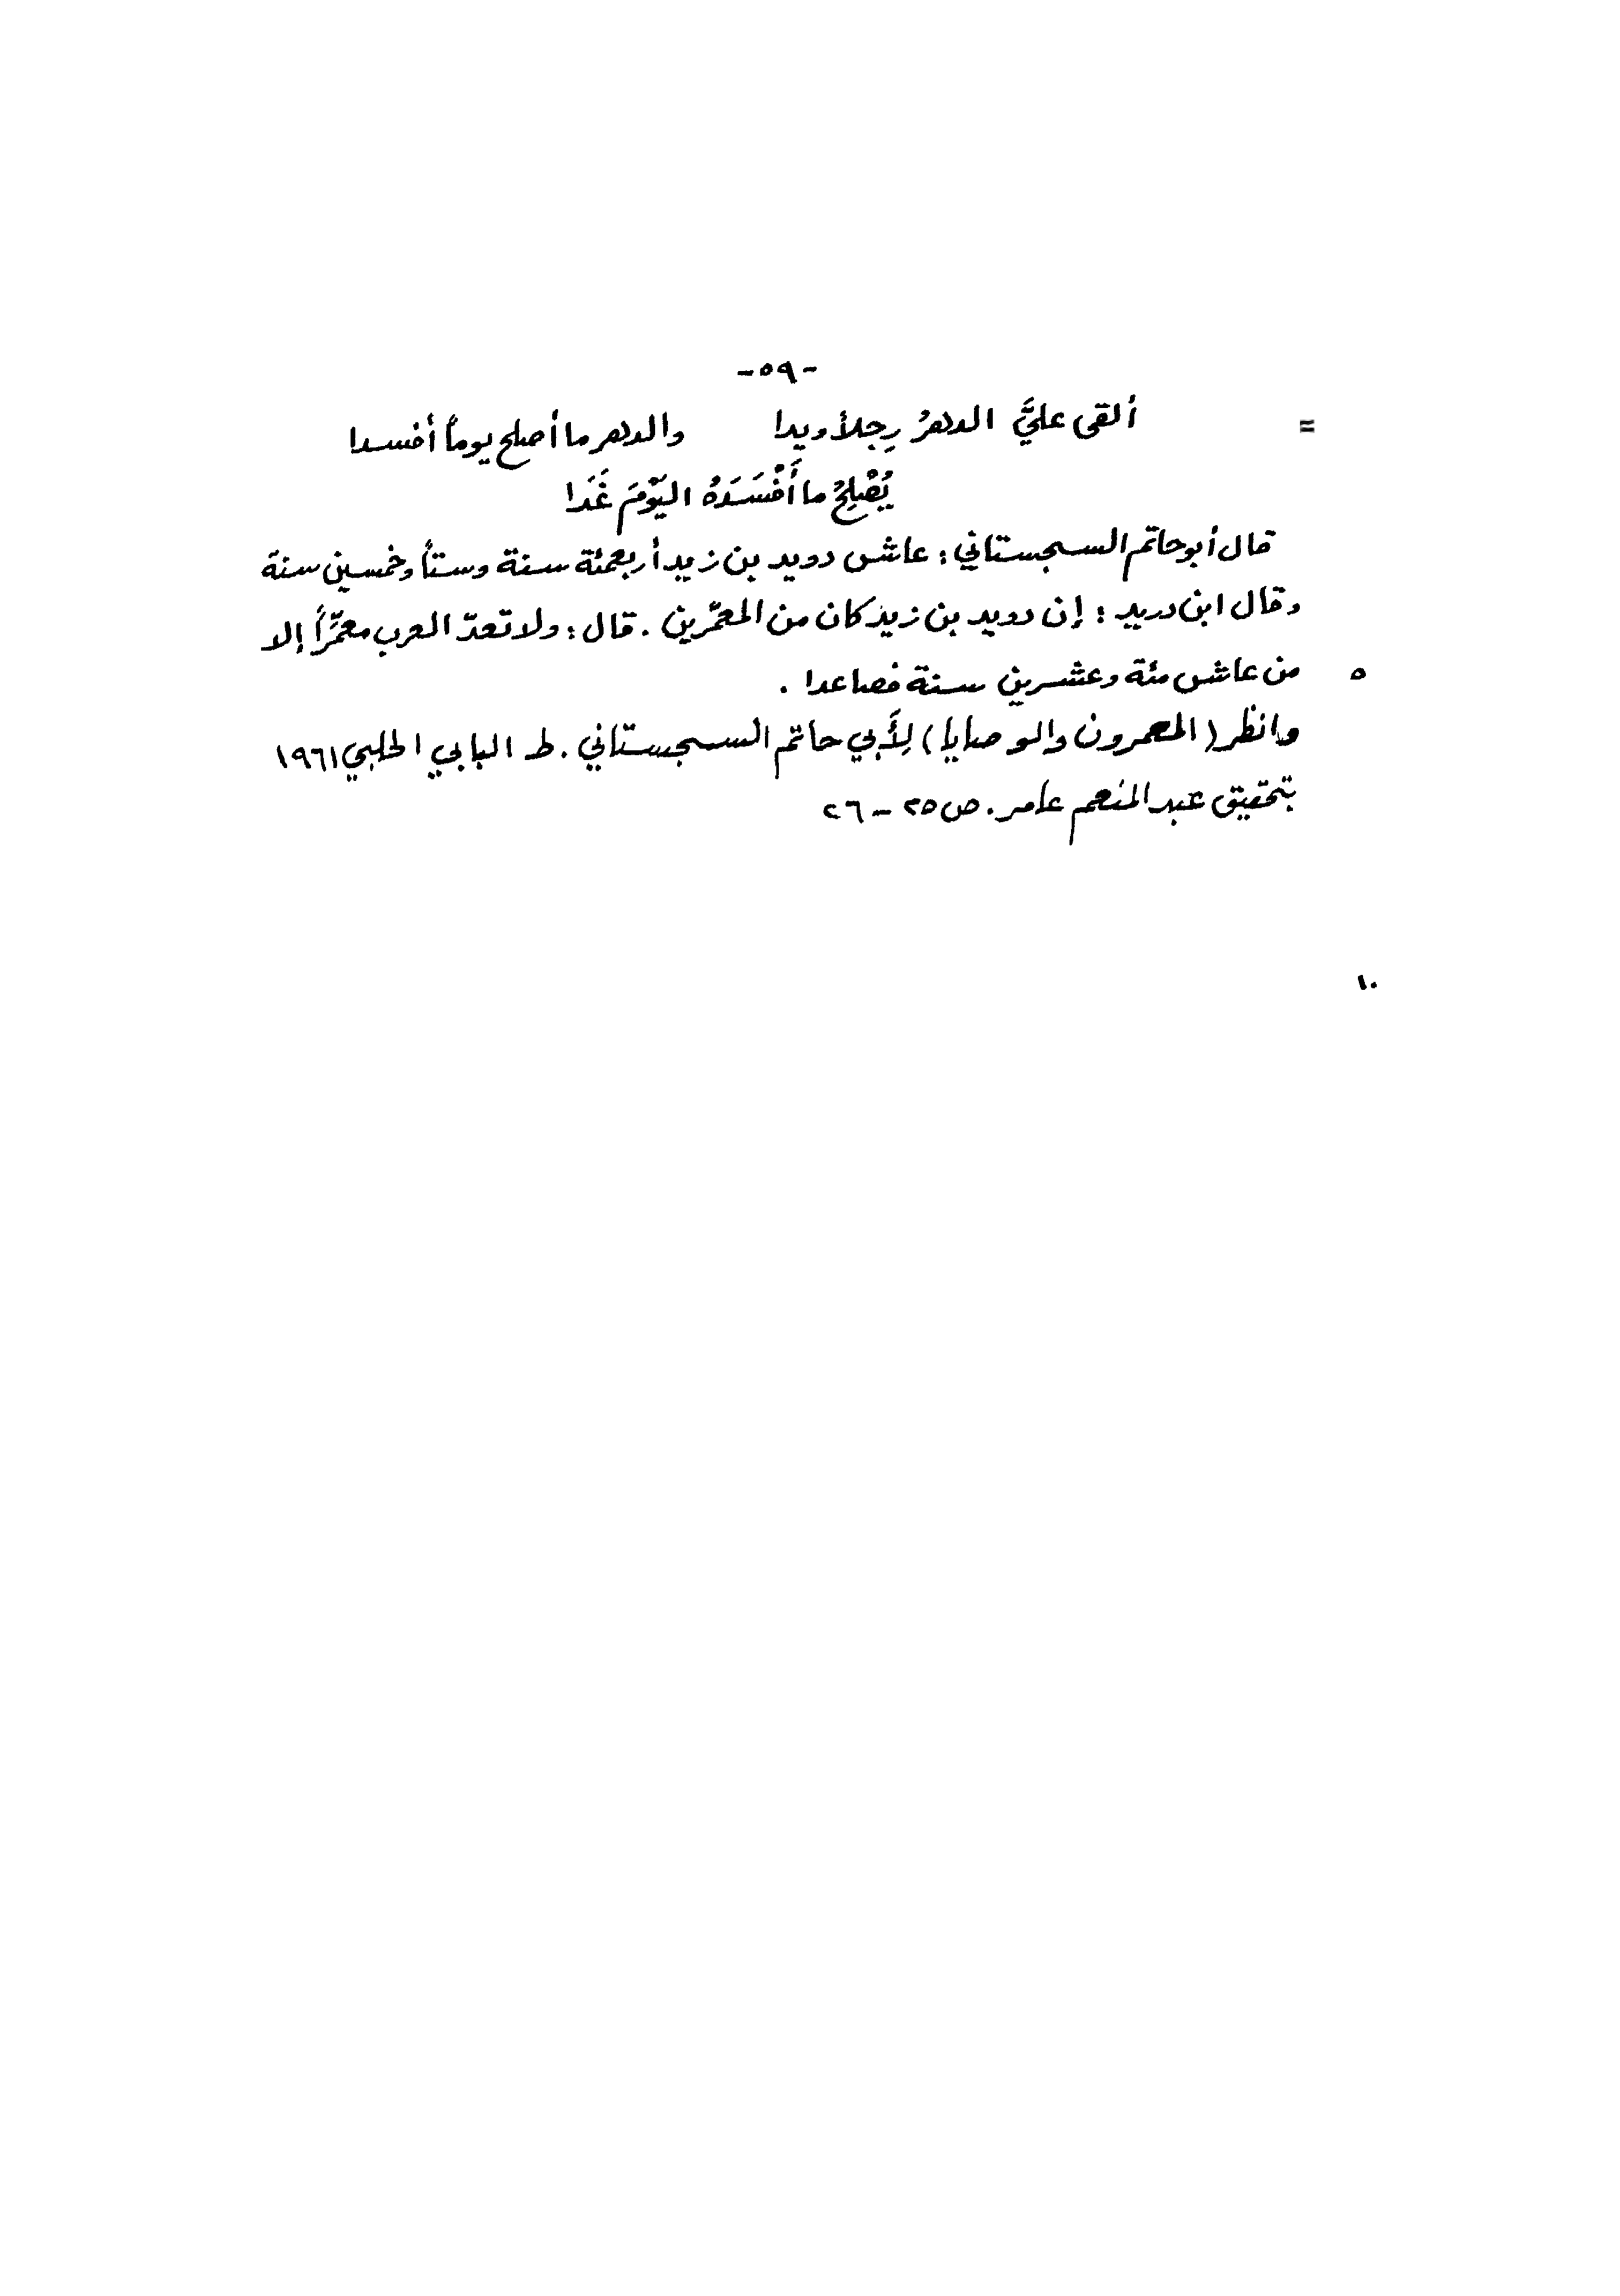 -٥٩-
= ألقى عليَّ الدهرُ رِجلاً ويدا والدهر ما أصلح يوماً أفسدا
يُصْلِحُ ما أَفْسَدَهُ اليَوْمَ غَدَا
قال أبو حاتم السجستاني : عاش دويد بن زيد أربعمئة سنة وستاً وخمسين سنة
وقال ابن دريد : إن دويد بن زيد كان من المعمّرين . قال : ولا تعدّ العرب معمَّراً إلا
٥ من عاش مئة وعشرين سنة فصاعدا .
وانظر ( المعمرون والوصايا ) لِأَبي حاتم السجستاني . ط البابي الحلبي ١٩٦١
بتحقيق عبد المنعم عامر . ص ٢٥ - ٢٦
١٠